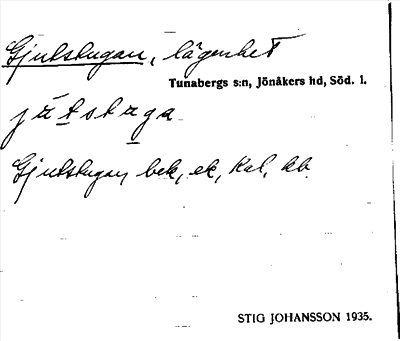 Gjutstugan, lägenhet
Tunabergs s:n, Jönåkers hd, Söd. l.
jùtstuga
Gjutstugan bek, ek, Kal, kb.
STIG JOHANSSON 1935.